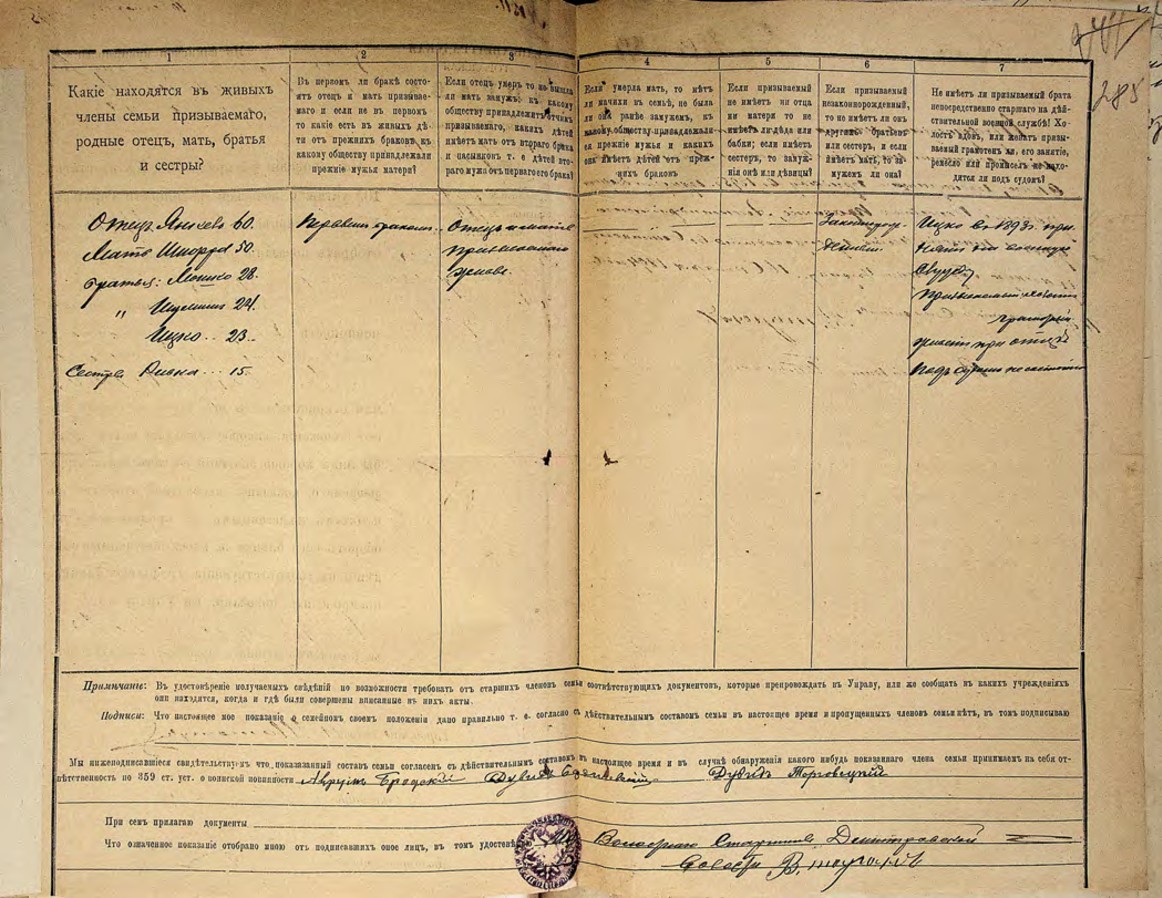 1
2
3
4
5
6
7
285
Какіе находятся въ живыхъ
члены семьи призываемаго,
родные отецъ, мать, братья
и сестры?
Въ первомъ ли бракѣ состо-
итъ отецъ и мать призывае-
маго и если не въ первомъ
то какіе есть въ живыхъ дѣ-
ти отъ прежнихъ браковъ къ
какому обществу принадлежали
прежніе мужья матери?
Если отецъ умеръ то не вышла
ли мать замужъ; къ какому
обществу принадлежитъ отчимъ
призываемаго, какихъ дѣтей
имѣетъ мать отъ втораго брака
и пасынковъ т. е дѣтей вто-
раго мужа отъ перваго его брака?
Если умерла мать, то нѣтъ
ли мачихи въ семьѣ, не была
ли она ранѣе замужемъ, къ
какому обществу принадлежали
ея прежніе мужья и какихъ
она имѣетъ дѣтей отъ преж-
нихъ браковъ
Если призываемый
не имѣетъ ни отца
ни матери то не
имѣетъ ли дѣда или
бабки; если имѣетъ
сестеръ, то замуж-
нія онѣ или дѣвицы?
Если призываемый
незаконорожденный,
то не имѣетъ ли онъ
другихъ братьевъ
или сестеръ, и если
имѣетъ мать, то за-
мужемъ ли она?
Не имѣетъ ли призываемый брата
непосредственно старшаго на дѣй-
ствительной военной службѣ? Хо-
лостъ вдовъ, или женатъ призы-
ваемый грамотенъ ли, его занятіе,
ремесло или промыселъ не нахо-
дится ли подъ судомъ?
Отецъ Янкель 60.
Мать 50.
Братья: Мошко 28.
" 24.
Ицко .. 23..
Сестра Ривка ... 15.
Первымъ бракомъ
Отецъ и мать
призываемаго
живы.
Законнорож-
денный.
Ицко въ 1893 г. при-
нятъ на военную
службу
Призываемый холостъ
грамотный
живетъ при отцѣ
Подъ судомъ не состоитъ
Примѣчаніе: Въ удостовѣреніе получаемыхъ свѣдѣній по возможности требовать отъ старшихъ членовъ семьи соотвѣтствующихъ документовъ, которые препровождать въ Управу, или же сообщать въ какихъ учрежденіяхъ
они находятся, когда и гдѣ были совершены вписанные въ нихъ акты.
Подписи: Что настоящее мое показаніе о семейномъ своемъ положеніи дано правильно т. е. согласно съ дѣйствительнымъ составомъ семьи въ настоящее время и пропущенныхъ членовъ семьи нѣтъ, въ томъ подписываю
Мы нижеподписавшіеся свидѣтельствуемъ что показазанный составъ семьи согласенъ съ дѣйствительнымъ составомъ въ настоящее время и въ случаѣ обнаруженія какого нибудь показаннаго члена семьи принимаемъ на себя от-
вѣтственность по 359 ст. уст. о воинской повинности Аврумъ Бродскій Дувидъ Дувидъ Торговицкій
При семъ прилагаю документы
Что означенное показаніе отобрано мною отъ подписавшихъ оное лицъ, въ томъ удостовѣ
Волостной Старшина Дмитровской
волости